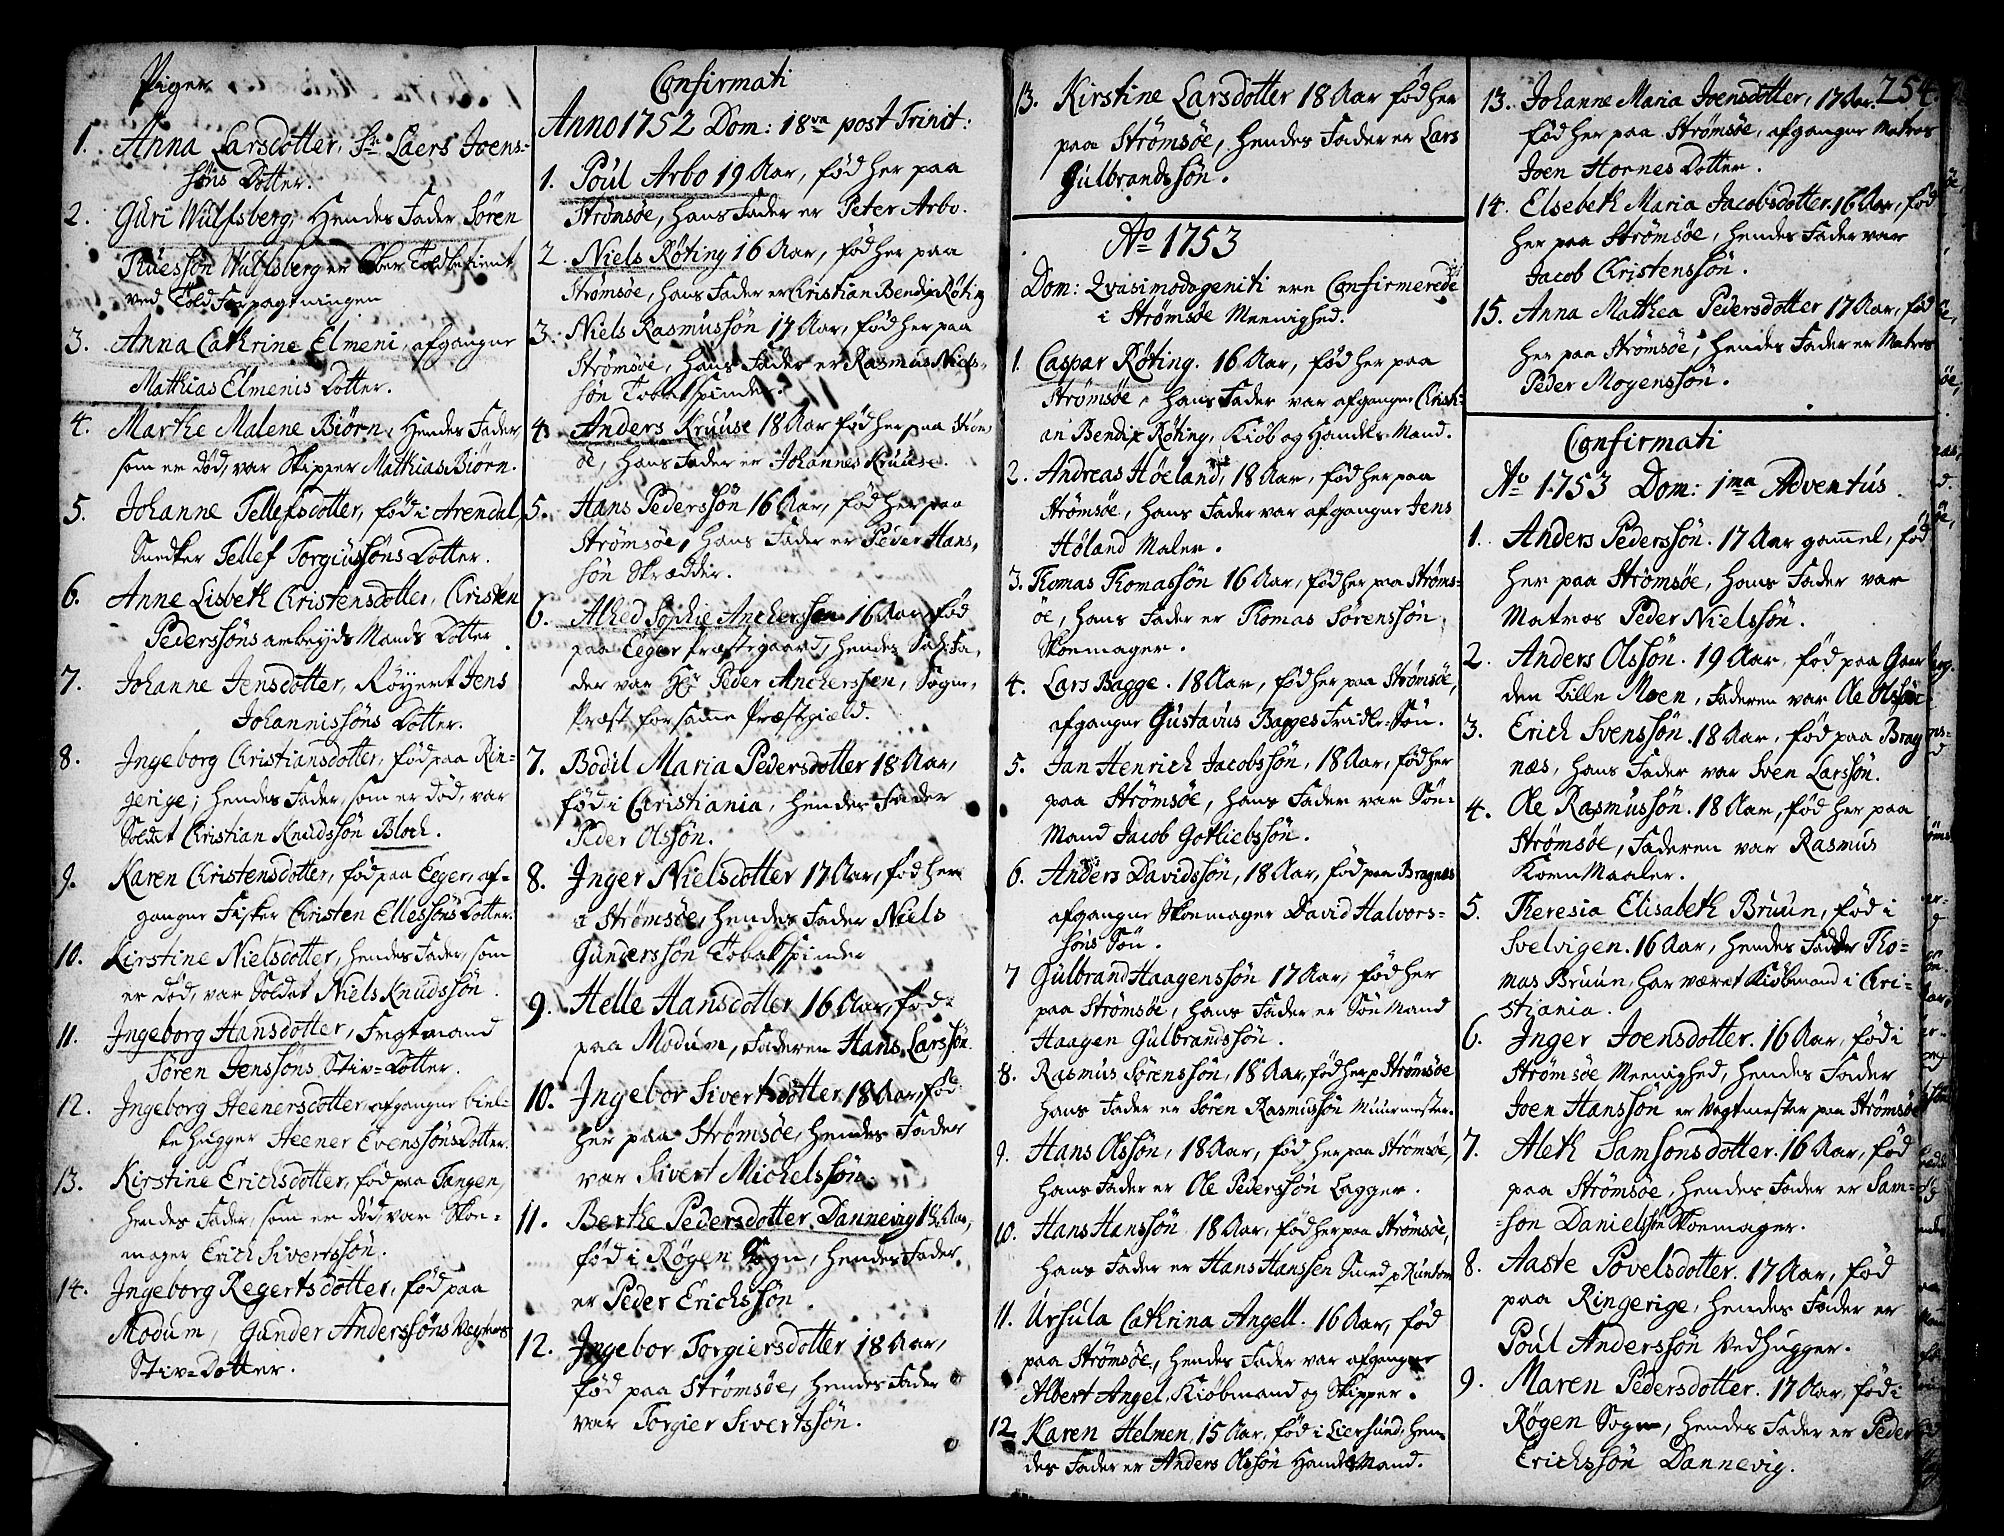 Piger
1. Anna Larsdotter, Sr. Laers Joens-
søns Dotter.
2. Guri Wulfsberg, Hendes Fader Sören
Truesson Wulfsberg er Ober Toldbetient
ved Told Forpagtningen
3. Anna Cathrine Elmeni, afgangne
Matthias Elmenis Dotter.
4. Marthe Malene Biørn, Hendes Fader
som er død, var Skipper Mathias Biørn.
5. Johanne Tellefsdotter, fød i Arendal,
Snedker Tellef Torgiussøns Dotter.
6. Anne Lisbeth Christensdotter, Christen
Pederssøns arbeyds Mands Dotter
7. Johanne Jensdotter, Røyert Jens
Johannissøns Dotter.
8. Ingeborg Christiansdotter, fød paa Rin-
gerige, hendes Fader, som er død, var
Soldat Christian Knudssøn Bloch.
9. Karen Christensdotter, fød paa Eeger, af-
gangne Fisker Christen Ellessøns Dotter.
10. Kirstine Nielsdotter, hendes Fader, som
er død, var Soldat Niels Knudssøn.
11. Ingeborg Hansdotter, Fragtmand
Søren Jenssøns Stiv-Dotter.
12. Ingeborg Heenersdotter, afgangne biel-
kehugger Heener Evenssøns Dotter.
13. Kirstine Erichsdotter, fød paa Tangen,
hendes Fader, som er død, var Skoe-
mager Erich Sivertssøn.
14. Ingeborg Regertsdotter, fød paa
Modum, Gunder Anderssøns
Stiv-Dotter.
Confirmati
Anno 1752 Dom: 18va post Trinit:
1. Poul Arbo 19 Aar, fød her paa
Strømsøe, hans Fader er Peter Arbo.
2. Niels Røting 16 Aar, fød her paa
Strømsøe, hans Fader er Christian Bendix Røting
3. Niels Rasmussøn 17 Aar, fød her paa
Strømsøe, hans Fader er Rasmus Niels-
søn Tobakspinder.
4. Anders Kruuse 18 Aar fød her paa Strøms-
øe, hans Fader er Johannes Kruuse.
5. Hans Pederssøn 16 Aar, fød her paa
Strømsøe, hans Fader er Peder Hans-
søn Skrædder.
6. Alhed Sophie Anchersen 16 Aar, fød
paa Eeger Præstegaard, hendes Sal: Fa-
der var Hr Peder Ancherssen, Sogne-
Præst for samme Præstegiæld.
7. Bodil Maria Pedersdotter 18 Aar,
fød i Christiania, hendes Fader
Peder Olssøn.
8. Inger Nielsdotter 17 Aar, fød her
a Strømsøe, hendes Fader Niels
Gunderssøn Tobakspinder
9. Helle Hansdotter 16 Aar, fød
paa Modum, Faderen Hans Larssøn.
10. Ingebor Sivertsdotter 18 Aar, fød
her paa Strømsøe, hendes Fader
var Sivert Michelssøn.
11. Berthe Pedersdotter Dannevig 18 Aar,
fød i Røgen Sogn, hendes Fader
er Peder Erichssøn.
12. Ingebor Torgiersdotter 18 Aar,
fød paa Strømsøe, hendes Fader
var Torgier Sivertssøn.
13. Kirstine Larsdotter 18 Aar fød her
paa Strømsøe, hendes Fader er Lars
Gulbrandssøn.
Ao 1753
Dom: Qvasimodogeniti ere Confirmerede
i Strømsøe Meenighed.
1. Caspar Røting. 16 Aar, fød her paa
Strømsøe, hans Fader var afgangne Christi-
an Bendix Røting, Kiøb og Handels-Mand.
2. Andreas Høeland, 18 Aar, fød her paa
Strømsøe, hans Fader var afgangne Jens
Høland Maler.
3. Thomas Thomassøn 16 Aar, fød her paa Strøms-
øe, hans Fader er Thomas Sørenssøn
Skoemager.
4. Lars Bagge. 18 Aar, fød her paa Strømsøe,
afgangne Gustavus Bagges Fridle-Søn.
5. Jan Henrich Jacobssøn, 18 Aar, fød her
paa Strømsøe, hans Fader var Søe-
Mand Jacob Gotliebssøn.
6. Anders Davidssøn, 18 Aar, fød paa Bragnæs
afgangne Skoemager David Halvors-
søns Søn.
7 Gulbrand Haagenssøn 17 Aar, fød her
paa Strømsøe, hans Fader er Søe Mand
Haagen Gulbrandssøn.
8. Rasmus Sørenssøn, 18 Aar, fød her p Strømsøe
hans Fader er Sören Rasmussøn Muurmester.
9. Hans Olssøn, 18 Aar, fød her paa Strømsøe,
hans Fader er Ole Pederssøn Lagger.
10. Hans Hanssøn 18 Aar, fød her paa Strømsøe,
hans Fader er Hans Hanssen Smed p Runtom
11. Ursula Cathrina Angell. 16 Aar, fød
paa Strømsøe, hendes Fader var afgangne
Albert Angel, Kiøbmand og Skipper.
12 Karen Helmen, 15 Aar, fød i Liersund, hen-
des Fader er Anders Olssøn Handelsmand.
254.
13. Johanne Maria Joensdotter, 17 Aar.
fød her paa Strømsøe, afgangne Matros
Joen Hornes Dotter.
14. Elsebeth Maria Jacobsdotter. 16 Aar, fød
her paa Strømsøe, hendes Fader var
Jacob Christenssøn.
15. Anna Mathea Pedersdotter 17 Aar, fød
her paa Strømsøe, hendes Fader er Matros
Peder Mogenssøn.
Confirmati
Ao 1753 Dom: 1ma Adventus.
1. Anders Pederssøn. 17 Aar gammel, fød
her paa Strømsøe, hans Fader var
Matros Peder Nielssøn.
2. Anders Olssøn. 19 Aar, fød paa Gaar-
den Lille Moen, Faderen var Ole Olssøn
3. Erich Svenssøn. 18 Aar, fød paa Brag-
næs, hans Fader var Sven Larssøn.
4. Ole Rasmussøn. 18 Aar, fød her paa
Strømsøe, Faderen var Rasmus
Korn Maaler.
5. Theresia Elisabeth Bruun, fød i
Svelvigen. 16 Aar, hendes Fader Tho-
mas Bruun, har været Kiøbmand i Chri-
stiania.
6. Inger Joensdotter. 16 Aar, fød i
Strømsøe Meenighed, hendes Fader
Joen Hanssøn er Vagtmester paa Strømsøe
7. Aleth Samsonsdotter. 16 Aar, fød
paa Strømsøe, hendes Fader er Sam-
son Danielssøn Skoemager.
8. Aaste Povelsdotter. 17 Aar, fød
paa Ringerige, hendes Fader er
Poul Anderssøn Vedhugger.
9. Maren Pedersdotter. 17 Aar, fød i
Røgen Sogn, hendes Fader er Peder
Erichssøn Dannevig.